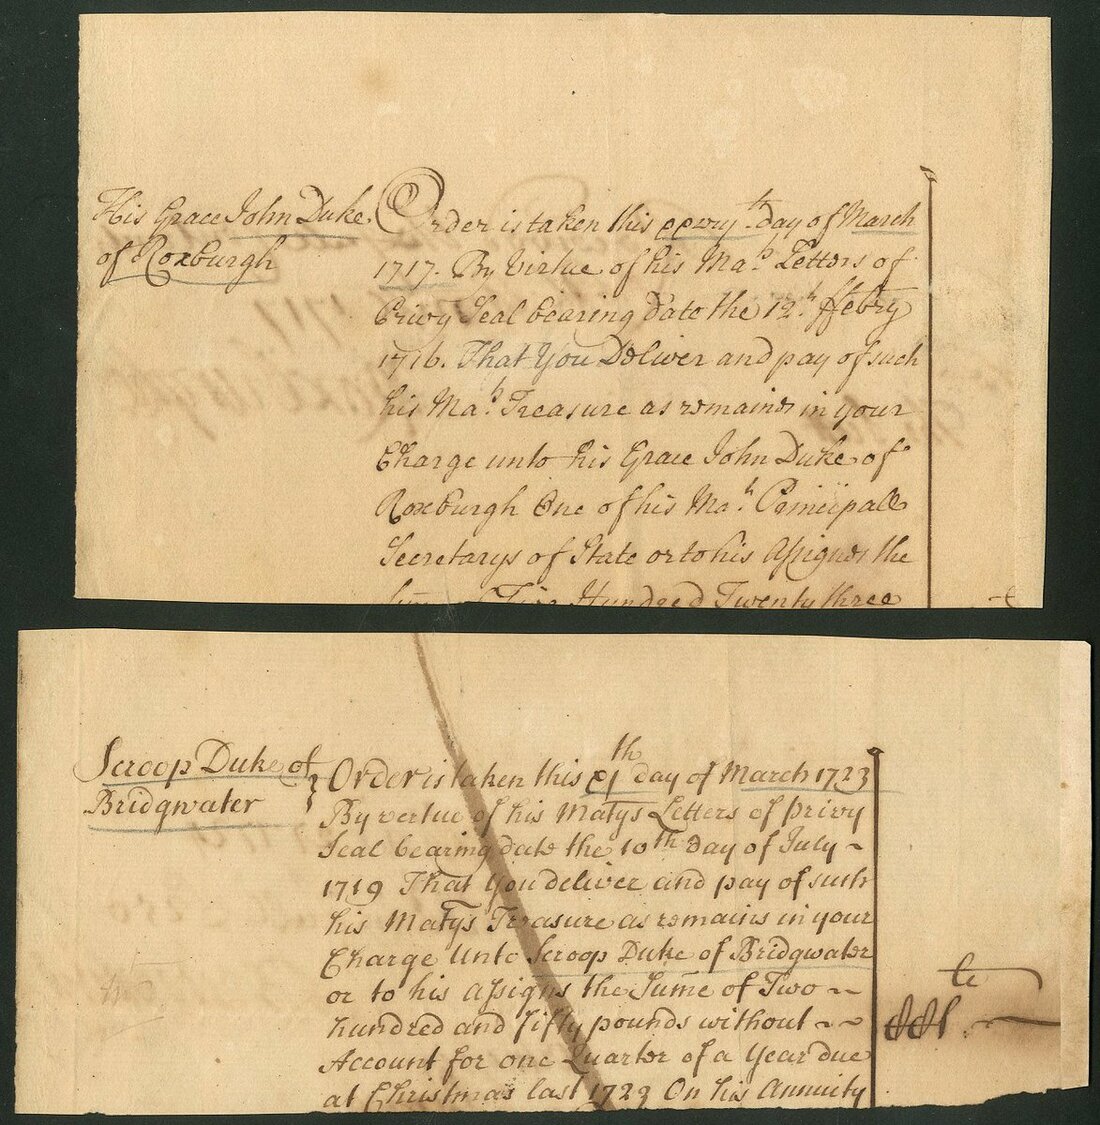 His Grace John Duke
of Roxburgh
Order is taken this xxvijth day of March
1717. By Virtue of his Mats Letters of
Privy Seal bearing date the 12th ffebry
1716. That You Deliver and pay of such
his Mats Treasure as remains in your
Charge unto his Grace John Duke of
Roxburgh One of his Mats Principall
Secretarys of State or to his Assignes the
sum of Five Hundred Twenty three
Scroop Duke of
Bridgwater
Order is taken this th day of March 1723
By vertue of his Matys Letters of privy
Seal bearing date the 10th Day of July ~
1719 That You deliver and pay of such
his Matys Treasure as remains in your
Charge Unto Scroop Duke of Bridgwater
or to his assigns the Sume of Two ~~
hundred and fifty pounds without ~~
Account for one Quarter of a Year due
at Christmas last 1723 On his Annuity